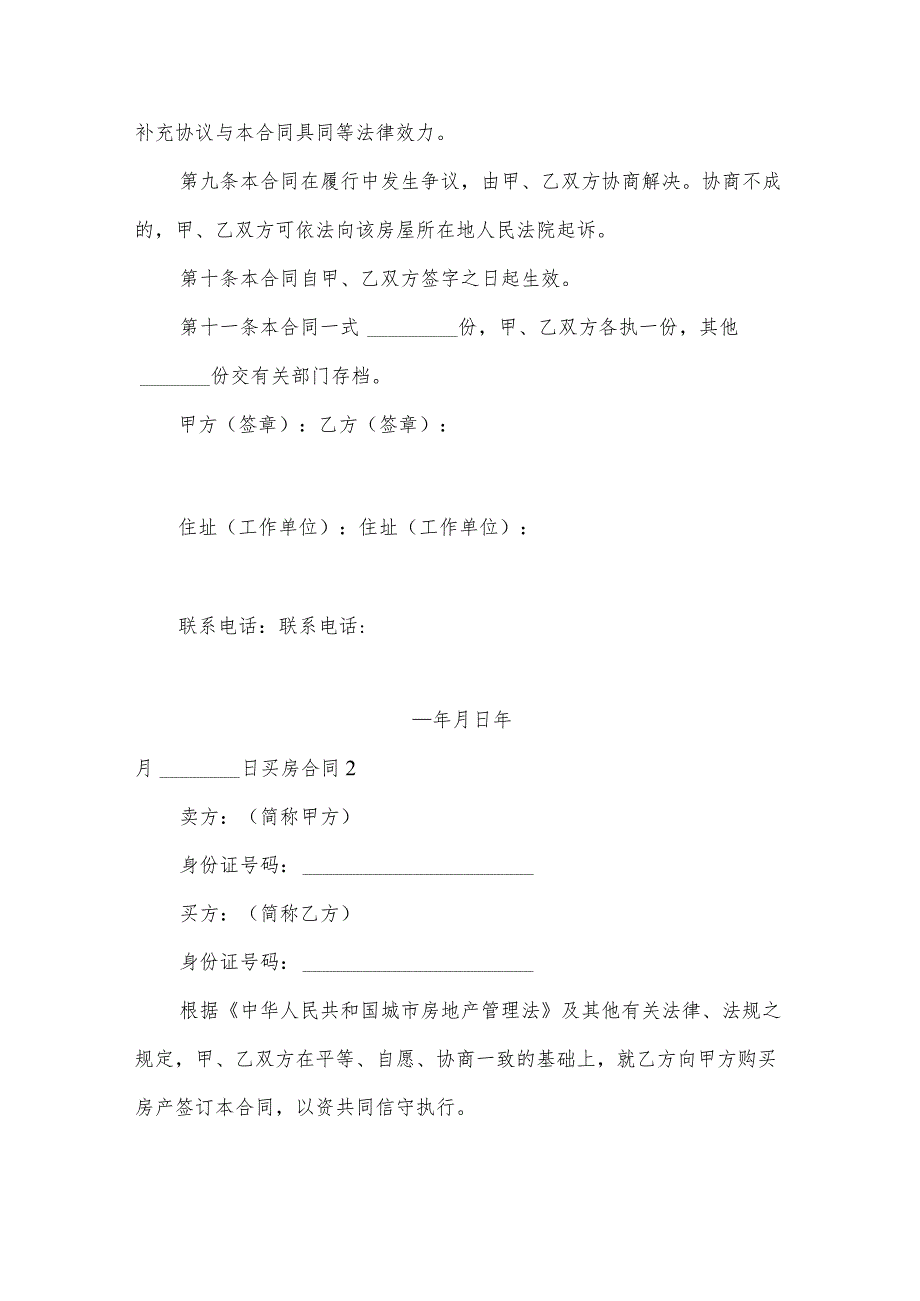 补充协议与本合同具同等法律效力。
第九条本合同在履行中发生争议，由甲、乙双方协商解决。协商不成
的，甲、乙双方可依法向该房屋所在地人民法院起诉。
第十条本合同自甲、乙双方签字之日起生效。
第十一条本合同一式 _________份，甲、乙双方各执一份，其他
_______份交有关部门存档。
甲方（签章）：乙方（签章）：
住址（工作单位）：住址（工作单位）：
联系电话：联系电话:
—年月日年
月 ________日买房合同2
卖方：（简称甲方）
身份证号码：_______________________
买方：（简称乙方）
身份证号码：_______________________
根据《中华人民共和国城市房地产管理法》及其他有关法律、法规之
规定，甲、乙双方在平等、自愿、协商一致的基础上，就乙方向甲方购买
房产签订本合同，以资共同信守执行。